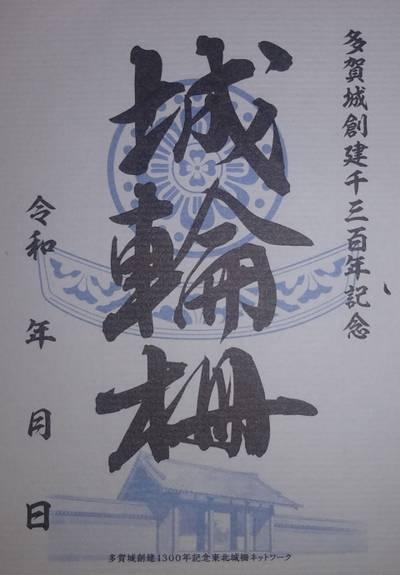 多賀城創建千三百年記念
城輪柵
令和 年 月 日
多賀城創建1300年記念東北城柵ネットワーク